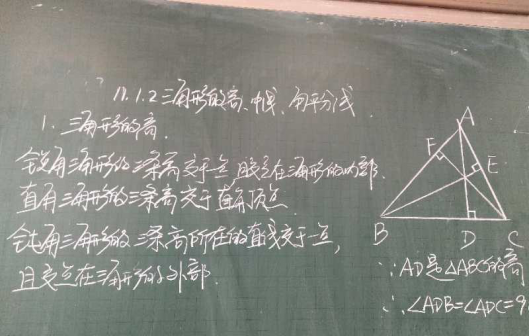 11.1.2 三角形的高、中线、角平分线
1. 三角形的高.
锐角三角形的三条高交于一点,且交点在三角形的内部.
直角三角形的三条高交于直角顶点
钝角三角形的三条高所在的直线交于一点,
且交点在三角形的外部.
A
F
E
B
D
C
∵AD是△ABC的高
∴∠ADB=∠ADC=9